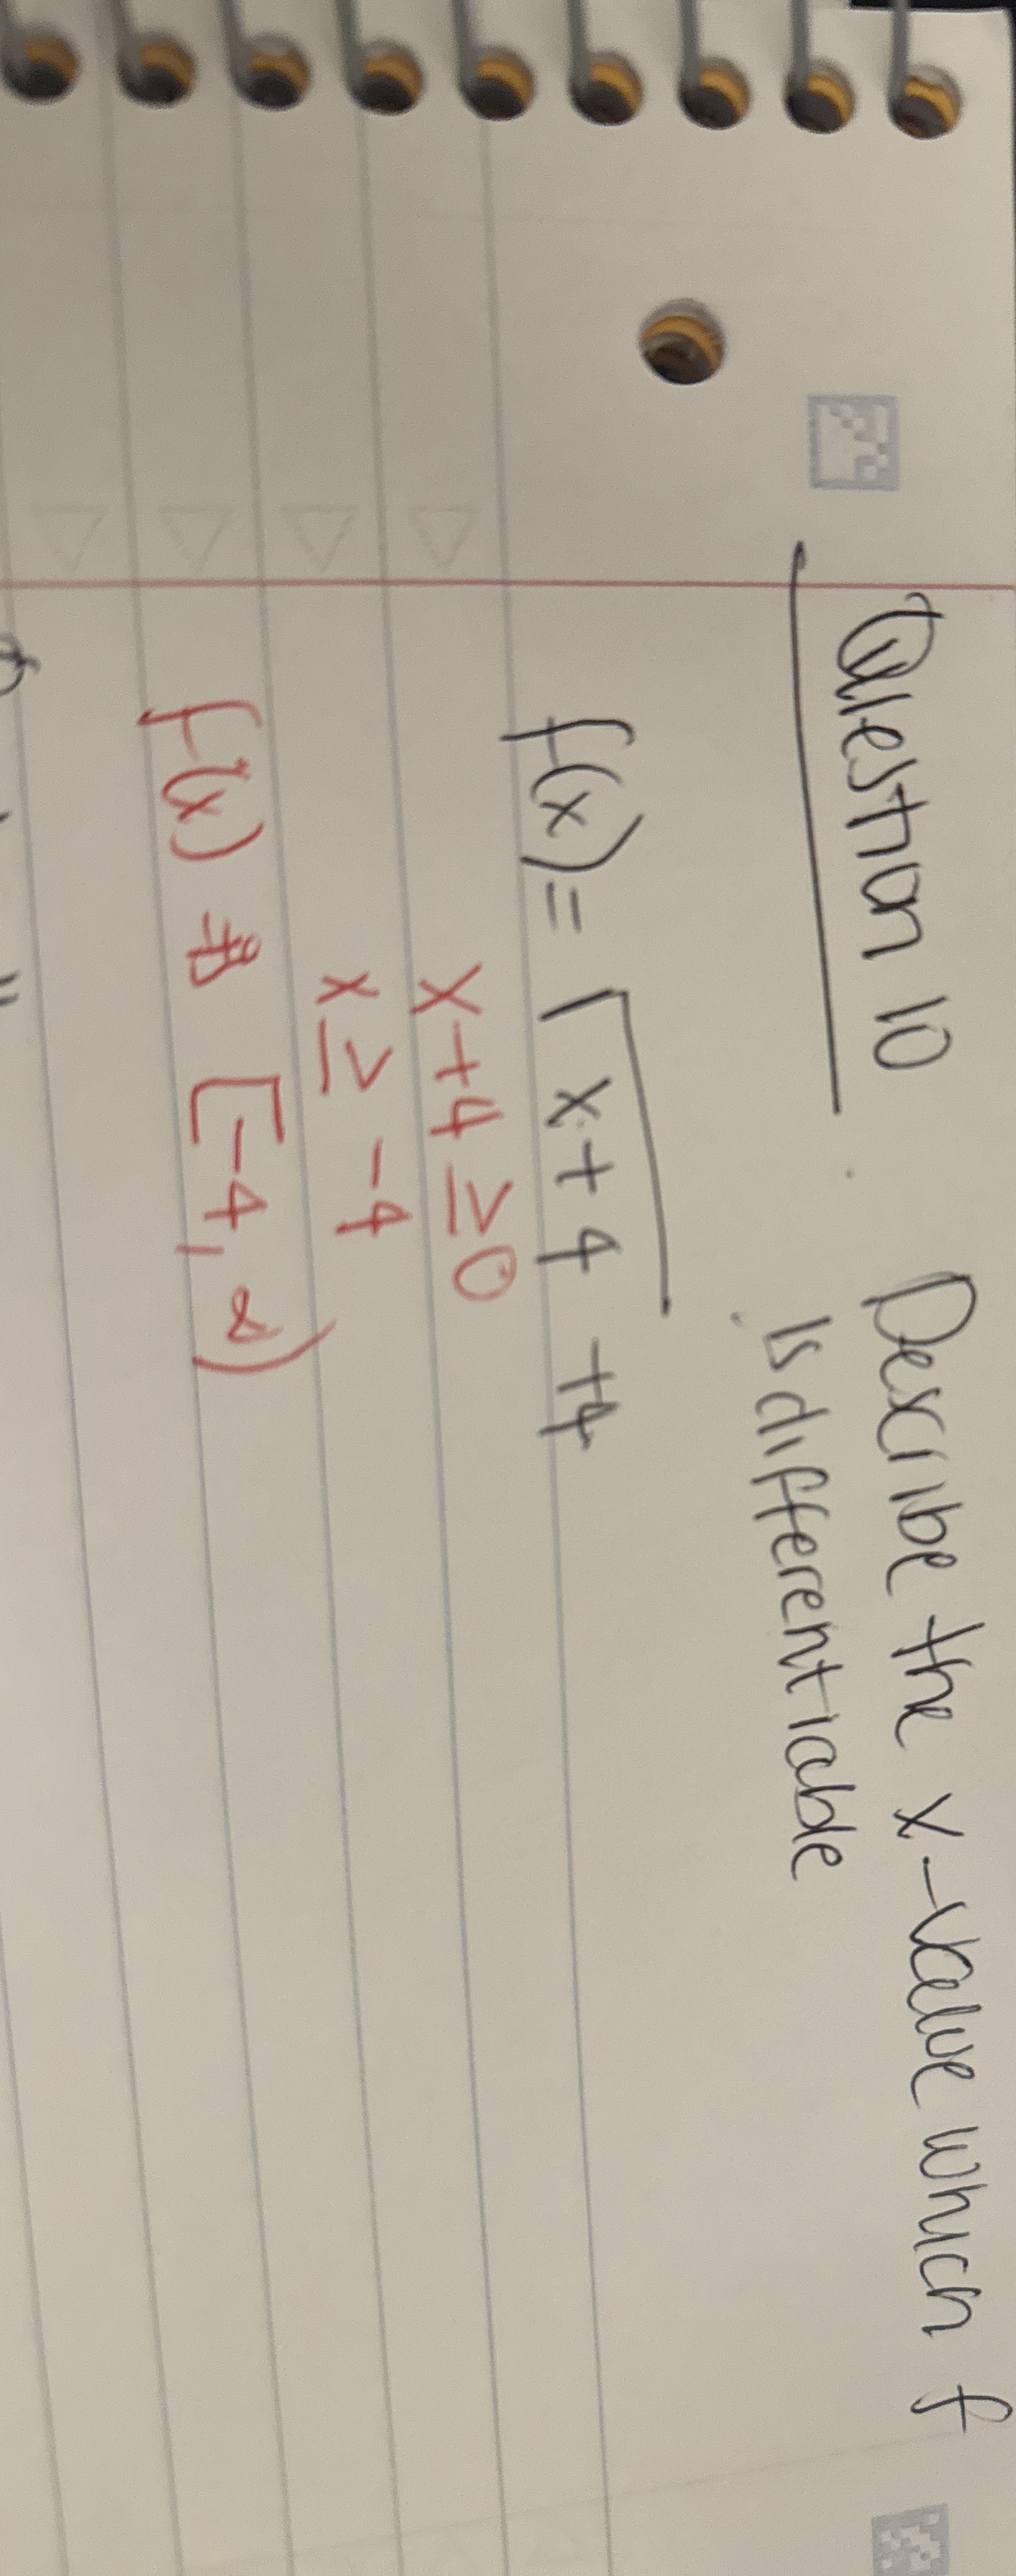 Question 10 Describe the x-value which f
is differentiable
f(x) = √x+4 +4
x+4 ≥ 0
x ≥ -4
f(x) [-4, ∞)